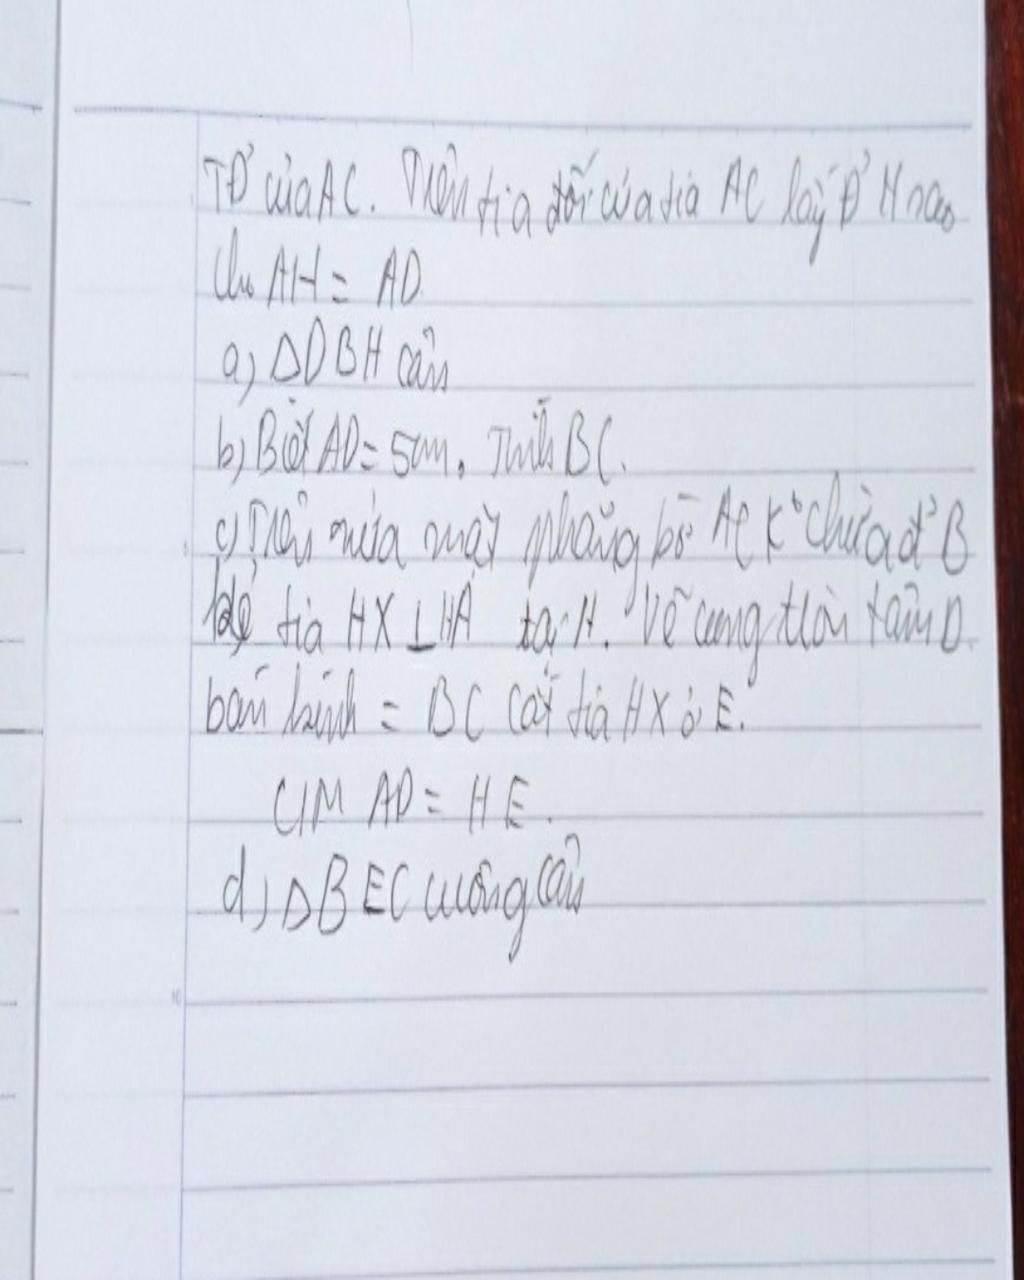 TĐ' của AC. Trên tia đối của tia AC lấy Đ' H sao
cho AH = AD.
a) ΔDBH cân
b) Biết AD = 5cm. Tính BC.
c) Trên nửa mặt phẳng bờ AC k° chứa đ' B
kẻ tia HX ⊥ HA tại H. Vẽ cung tròn tâm D.
bán kính = BC cắt tia HX ở E.
C/M AD = HE.
d) ΔBEC vuông cân
10